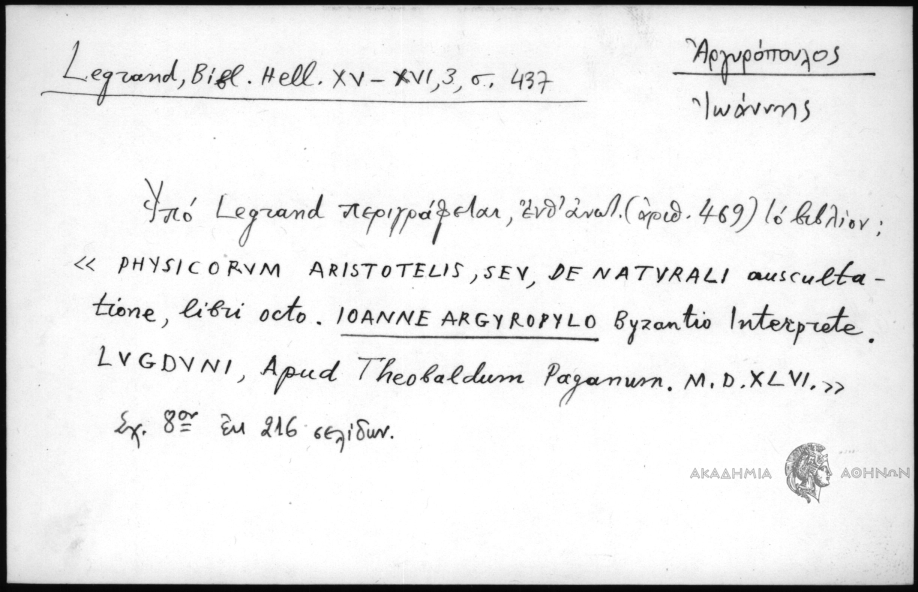 Legrand, Bibl. Hell. XV – XVI, 3, σ. 437
Ἀργυρόπουλος
Ἰωάννης
Ὑπό Legrand περιγράφεται, ἔνθ' ἀνωτ. (ἀριθ. 469) τό βιβλίον:
« PHYSICORVM ARISTOTELIS, SEV, DE NATVRALI ausculta-
tione, libri octo. IOANNE ARGYROPYLO Byzantio Interprete.
LVGDVNI, Apud Theobaldum Paganum. M.D.XLVI. »
Σχ. 8ον ἐκ 216 σελίδων.
ΑΚΑΔΗΜΙΑ ΑΘΗΝΩΝ